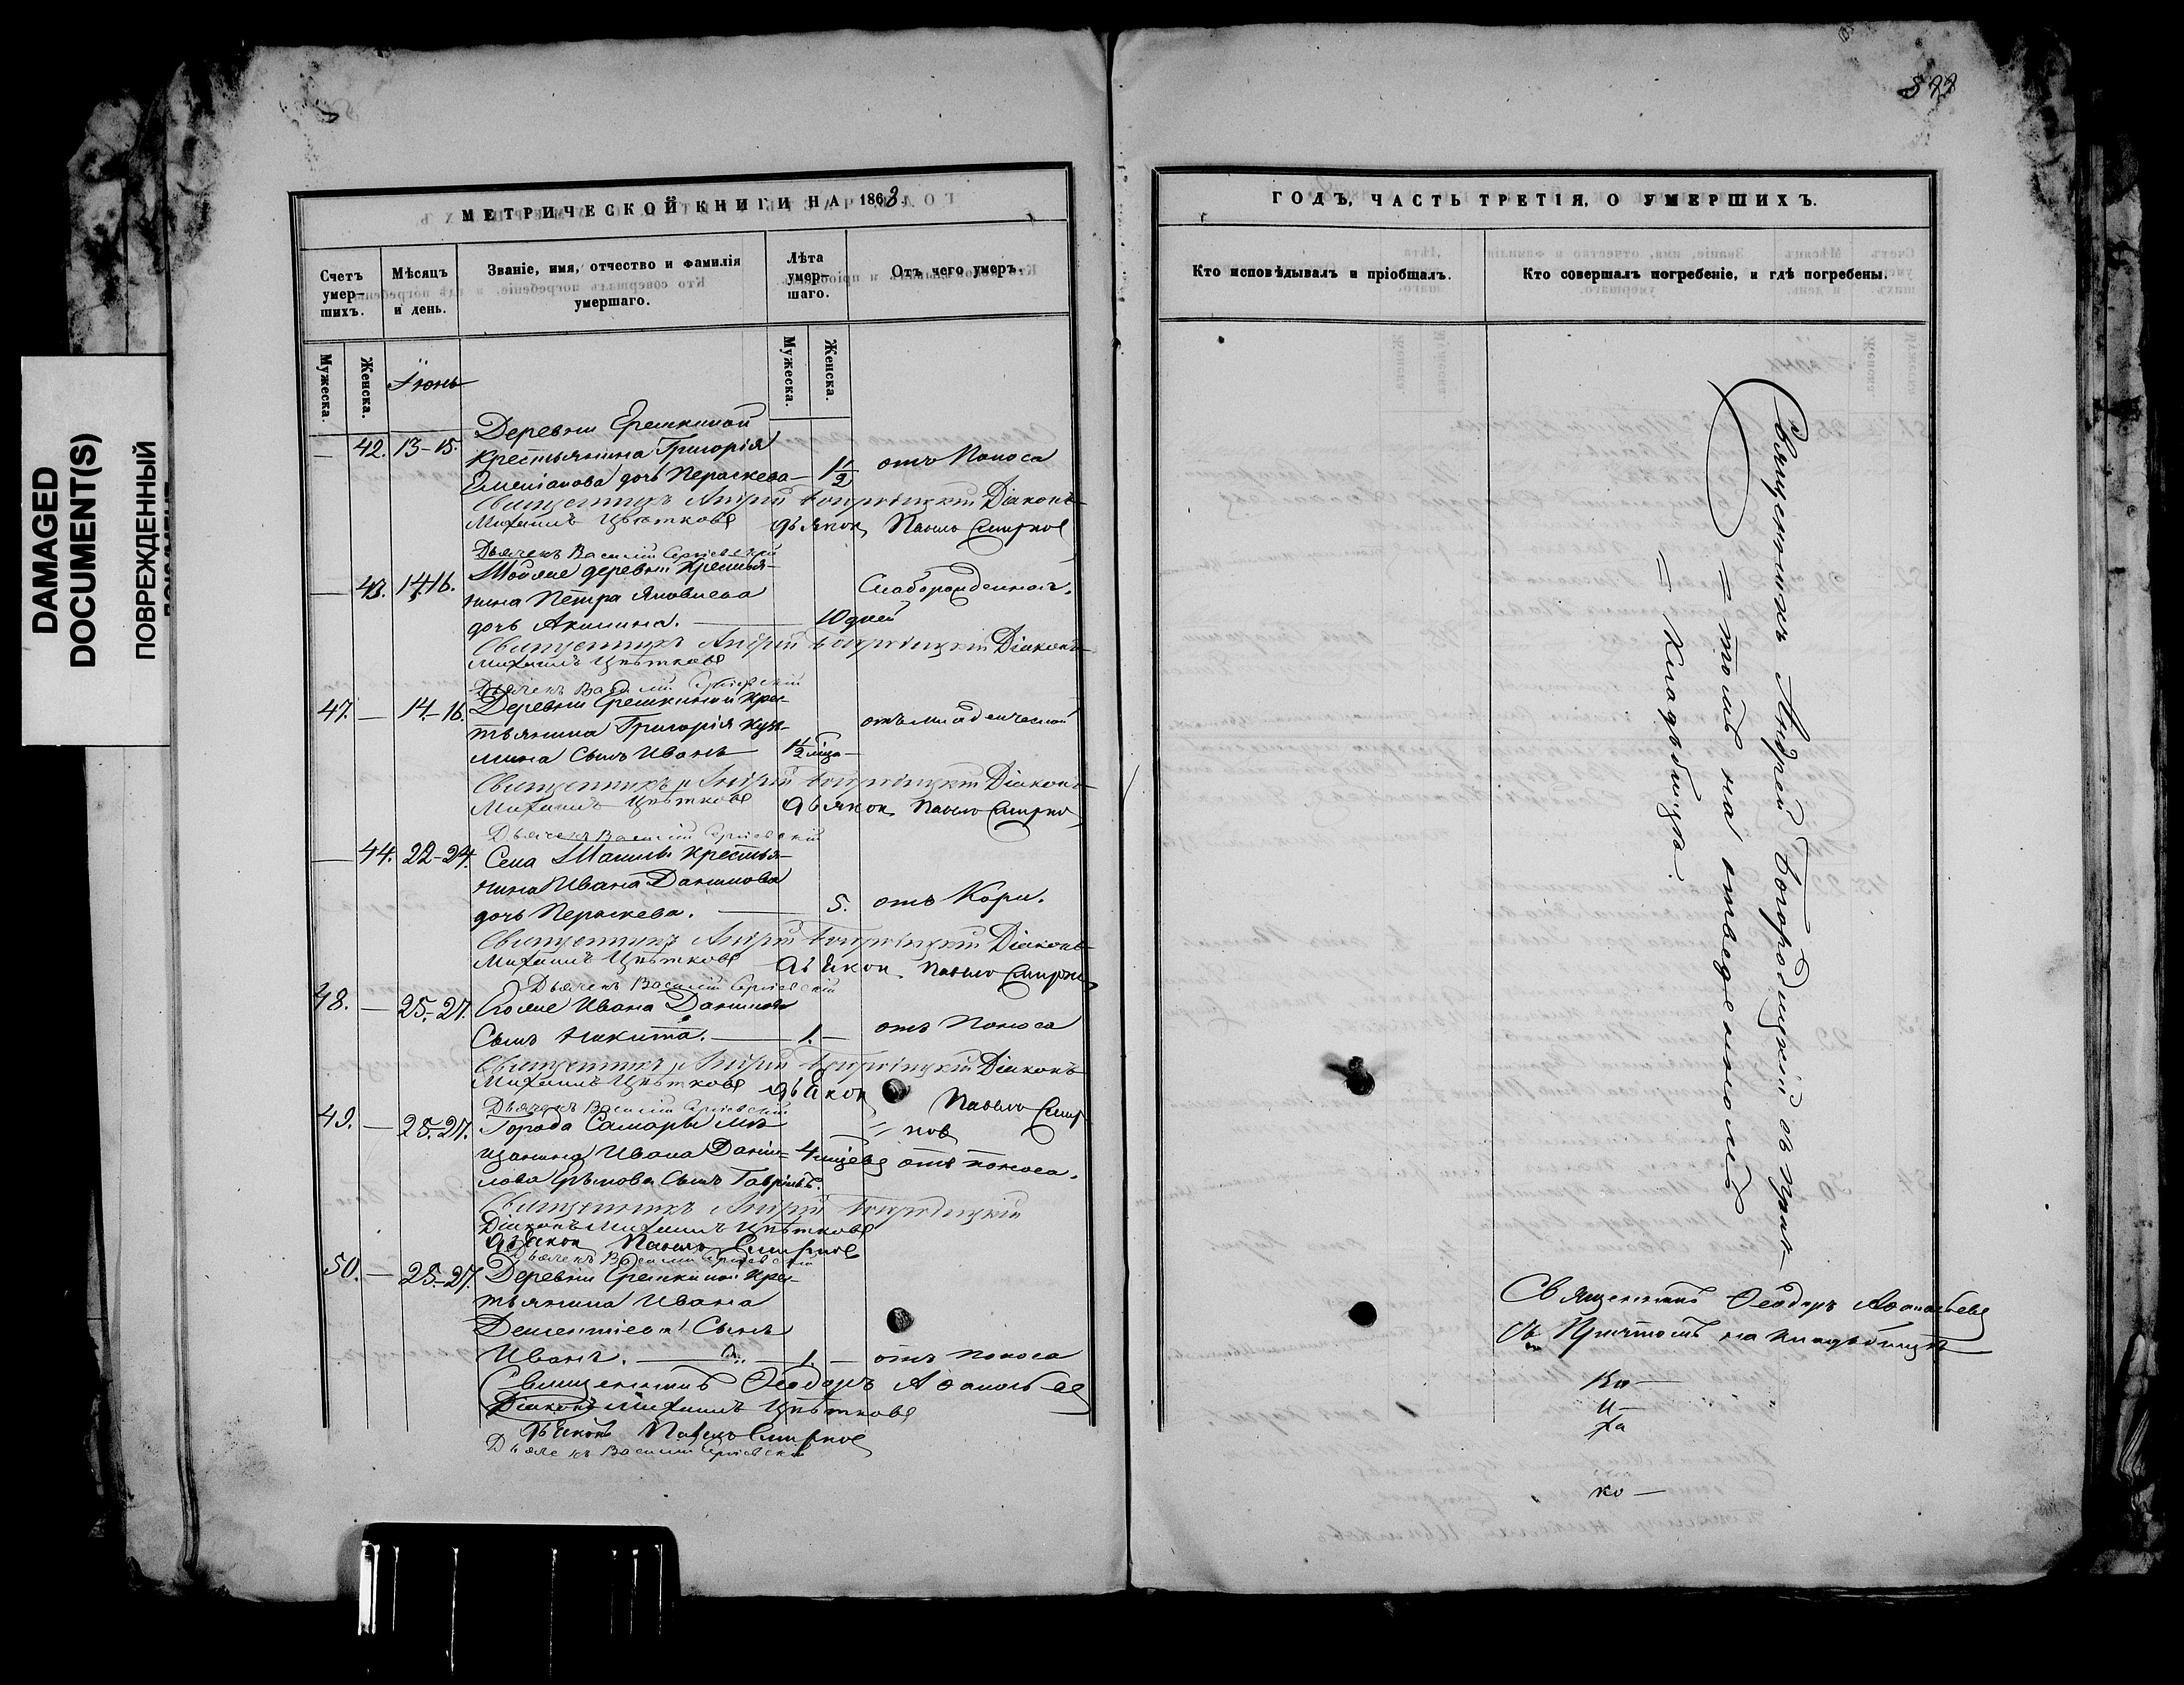 DAMAGED
DOCUMENT(S)
ПОВРЕЖДЕННЫЙ
МЕТРИЧЕСКОЙ КНИГИ НА 1863
Счетъ умер-шихъ.
Мѣсяцъ и день.
Званіе, имя, отчество и фамилія умершаго.
Лѣта умер-шаго.
Отъ чего умеръ.
Мужеска.
Женска.
Мужеска.
Женска.
Іюнь
Деревни Ерепкиной
— 42. 13-15. Крестьянина Григорія
Емельянова дочь Параскева — 1/2 отъ Поноса
Священникъ Андрей Богородицкій Діаконъ
Михаилъ Цвѣтковъ дьячок Павелъ Смирнов
Дьячекъ Василій Сергіевскій
— 43. 14-16. Тойже деревни Крестья-
нина Петра Яковлева Слаборожденная.
дочь Акилина. — 10 дней
Священникъ Андрей Богородицкій Діаконъ
Михаилъ Цвѣтковъ
Дьячекъ Василій Сергіевскій
47. — 14-16. Деревни Ерепкиной Крес-
тьянина Григорія Кузь- отъ младенческой
мина Сынъ Иванъ
Священникъ Андрей Богородицкій Діаконъ
Михаилъ Цвѣтковъ дьячок Павелъ Смирнов
Дьячекъ Василій Сергіевскій
— 44. 22-24. Села Крестья-
нина Ивана Данилова
дочь Параскева. — 5. отъ Кори.
Священникъ Андрей Богородицкій Діаконъ
Михаилъ Цвѣтковъ Павелъ Смирнов
Дьячекъ Василій Сергіевскій
48. — 25-27. Егоже Ивана Данилова
Сынъ Никита. — 1. — отъ Поноса
Священникъ Андрей Богородицкій Діаконъ
Михаилъ Цвѣтковъ
Дьячекъ Василій Сергіевскій Павелъ Смир
= нов
49. — 25-27. Города Самары мѣ
щанина Ивана Дани- 4 отъ поноса.
лова Сынъ Гавріилъ.
Священникъ Андрей Богородицкій
Діаконъ Михаилъ Цвѣтковъ
Павелъ Смирнов
Дьячекъ Василій Сергіевскій
50. — 25-27. Деревни Ерепкиной Крес-
тьянина Ивана
Дементіева Сынъ
Иванъ. — 1. — отъ поноса
Священникъ Ѳеодоръ Аѳанасьев
Діаконъ Михаилъ Цвѣтковъ
Павелъ Смирнов
Дьячекъ Василій Сергіевскій
577
ГОДЪ, ЧАСТЬ ТРЕТІЯ, О УМЕРШИХЪ.
Кто исповѣдывалъ и пріобщалъ.
Кто совершалъ погребеніе, и гдѣ погребены.
Священникъ Андрей Богородицкій съ прич-
= томъ на отведенномъ
= кладбищѣ.
Священникъ Ѳеодоръ Аѳанасьевъ
Съ Причтомъ на кладбищѣ
Ка —
и —
ра
ко —